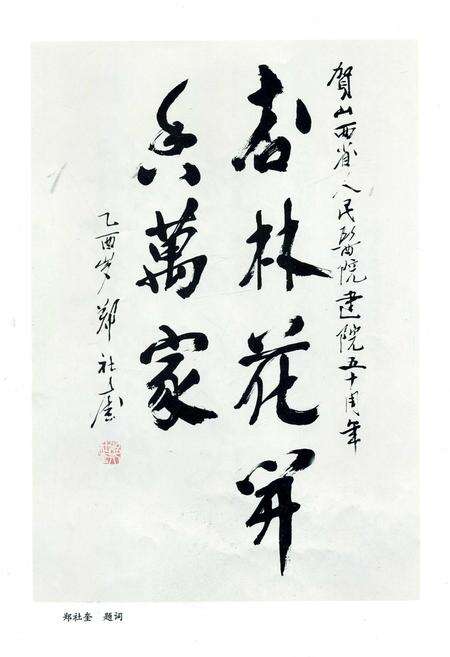 贺山西省人民醫院建院五十周年
杏林花開
香萬家
乙酉岁郑社奎
郑社奎 题词